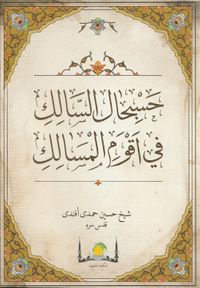 حسبحال السالك
في أقوم المسالك
شيخ حسين حمدى أفندى
قدس سره